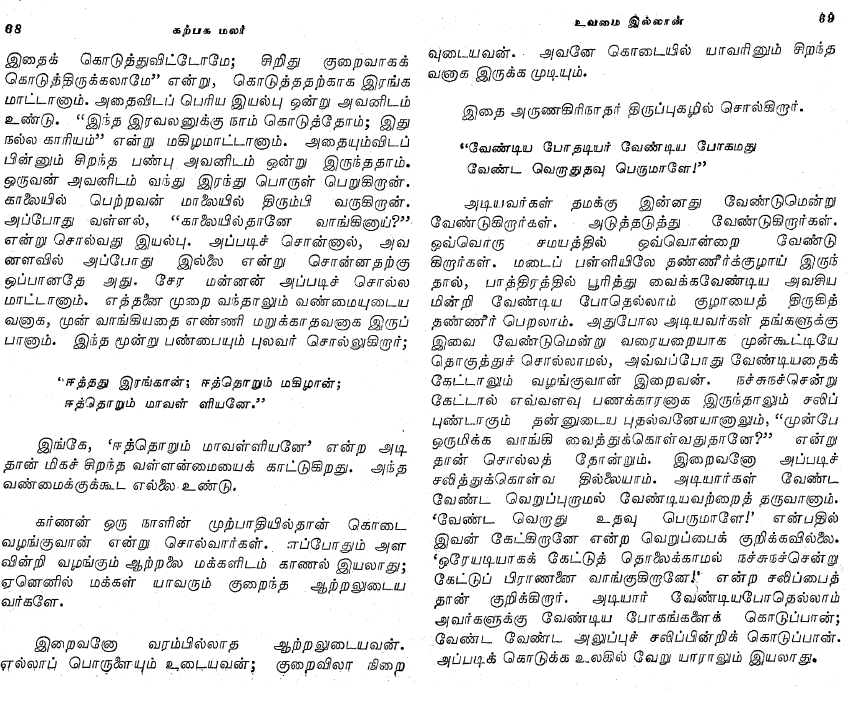 68
கற்பக மலர்
இதைக் கொடுத்துவிட்டோமே; சிறிது குறைவாகக்
கொடுத்திருக்கலாமே" என்று, கொடுத்ததற்காக இரங்க
மாட்டானாம். அதைவிடப் பெரிய இயல்பு ஒன்று அவனிடம்
உண்டு. "இந்த இரவலனுக்கு நாம் கொடுத்தோம்; இது
நல்ல காரியம்" என்று மகிழமாட்டானாம். அதையும்விடப்
பின்னும் சிறந்த பண்பு அவனிடம் ஒன்று இருந்ததாம்.
ஒருவன் அவனிடம் வந்து இரந்து பொருள் பெறுகிறான்.
காலையில் பெற்றவன் மாலையில் திரும்பி வருகிறான்.
அப்போது வள்ளல், "காலையில்தானே வாங்கினாய்?"
என்று சொல்வது இயல்பு. அப்படிச் சொன்னால், அவ
னளவில் அப்போது இல்லை என்று சொன்னதற்கு
ஒப்பானதே அது. சேர மன்னன் அப்படிச் சொல்ல
மாட்டானாம். எத்தனை முறை வந்தாலும் வண்மையுடைய
வனாக, முன் வாங்கியதை எண்ணி மறுக்காதவனாக இருப்
பானாம். இந்த மூன்று பண்பையும் புலவர் சொல்லுகிறார்;
"ஈத்தது இரங்கான்; ஈத்தொறும் மகிழான்;
ஈத்தொறும் மாவள் ளியனே."
இங்கே, 'ஈத்தொறும் மாவள்ளியனே' என்ற அடி
தான் மிகச் சிறந்த வள்ளன்மையைக் காட்டுகிறது. அந்த
வண்மைக்குக்கூட எல்லை உண்டு.
கர்ணன் ஒரு நாளின் முற்பாதியில்தான் கொடை
வழங்குவான் என்று சொல்வார்கள். எப்போதும் அள
வின்றி வழங்கும் ஆற்றலை மக்களிடம் காணல் இயலாது;
ஏனெனில் மக்கள் யாவரும் குறைந்த ஆற்றலுடைய
வர்களே.
இறைவனோ வரம்பில்லாத ஆற்றலுடையவன்.
எல்லாப் பொருளையும் உடையவன்; குறைவிலா நிறை
உவமை இல்லான்
69
வுடையவன். அவனே கொடையில் யாவரினும் சிறந்த
வனாக இருக்க முடியும்.
இதை அருணகிரிநாதர் திருப்புகழில் சொல்கிறார்.
"வேண்டிய போதடியர் வேண்டிய போகமது
வேண்ட வெறாதுதவு பெருமாளே!"
அடியவர்கள் தமக்கு இன்னது வேண்டுமென்று
வேண்டுகிறார்கள். அடுத்தடுத்து வேண்டுகிறார்கள்.
ஒவ்வொரு சமயத்தில் ஒவ்வொன்றை வேண்டு
கிறார்கள். மடைப் பள்ளியிலே தண்ணீர்க்குழாய் இருந்
தால், பாத்திரத்தில் பூரித்து வைக்கவேண்டிய அவசிய
மின்றி வேண்டிய போதெல்லாம் குழாயைத் திருகித்
தண்ணீர் பெறலாம். அதுபோல அடியவர்கள் தங்களுக்கு
இவை வேண்டுமென்று வரையறையாக முன்கூட்டியே
தொகுத்துச் சொல்லாமல், அவ்வப்போது வேண்டியதைக்
கேட்டாலும் வழங்குவான் இறைவன். நச்சுநச்சென்று
கேட்டால் எவ்வளவு பணக்காரனாக இருந்தாலும் சலிப்
புண்டாகும் தன்னுடைய புதல்வனேயானாலும், "முன்பே
ஒருமிக்க வாங்கி வைத்துக்கொள்வதுதானே?" என்று
தான் சொல்லத் தோன்றும். இறைவனோ அப்படிச்
சலித்துக்கொள்வ தில்லையாம். அடியார்கள் வேண்ட
வேண்ட வெறுப்புறாமல் வேண்டியவற்றைத் தருவானாம்.
'வேண்ட வெறாது உதவு பெருமாளே!' என்பதில்
இவன் கேட்கிறானே என்ற வெறுப்பைக் குறிக்கவில்லை.
'ஒரேயடியாகக் கேட்டுத் தொலைக்காமல் நச்சுநச்சென்று
கேட்டுப் பிராணனை வாங்குகிறானே!' என்ற சலிப்பைத்
தான் குறிக்கிறார். அடியார் வேண்டியபோதெல்லாம்
அவர்களுக்கு வேண்டிய போகங்களைக் கொடுப்பான்;
வேண்ட வேண்ட அலுப்புச் சலிப்பின்றிக் கொடுப்பான்.
அப்படிக் கொடுக்க உலகில் வேறு யாராலும் இயலாது.